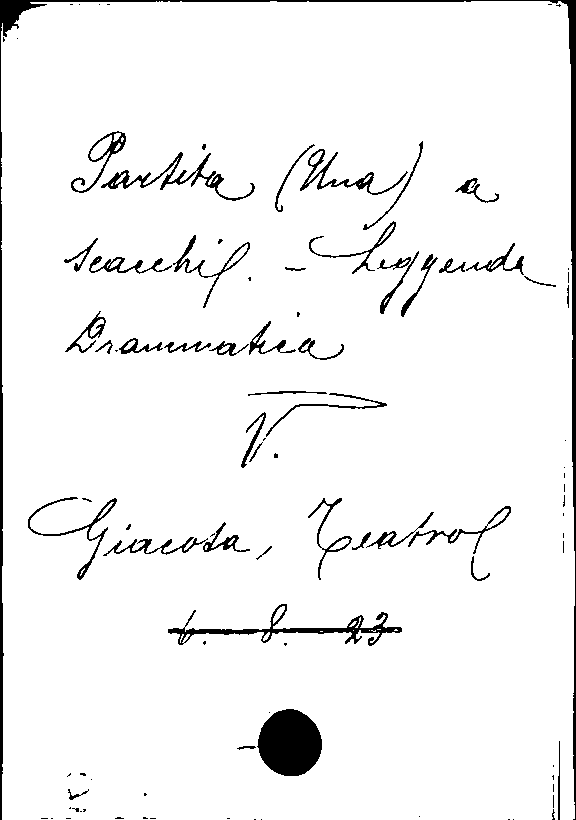 Partita (Una) a
scacchi. - Leggenda
Drammatica
V.
Giacosa, Teatro
6. 8. 23